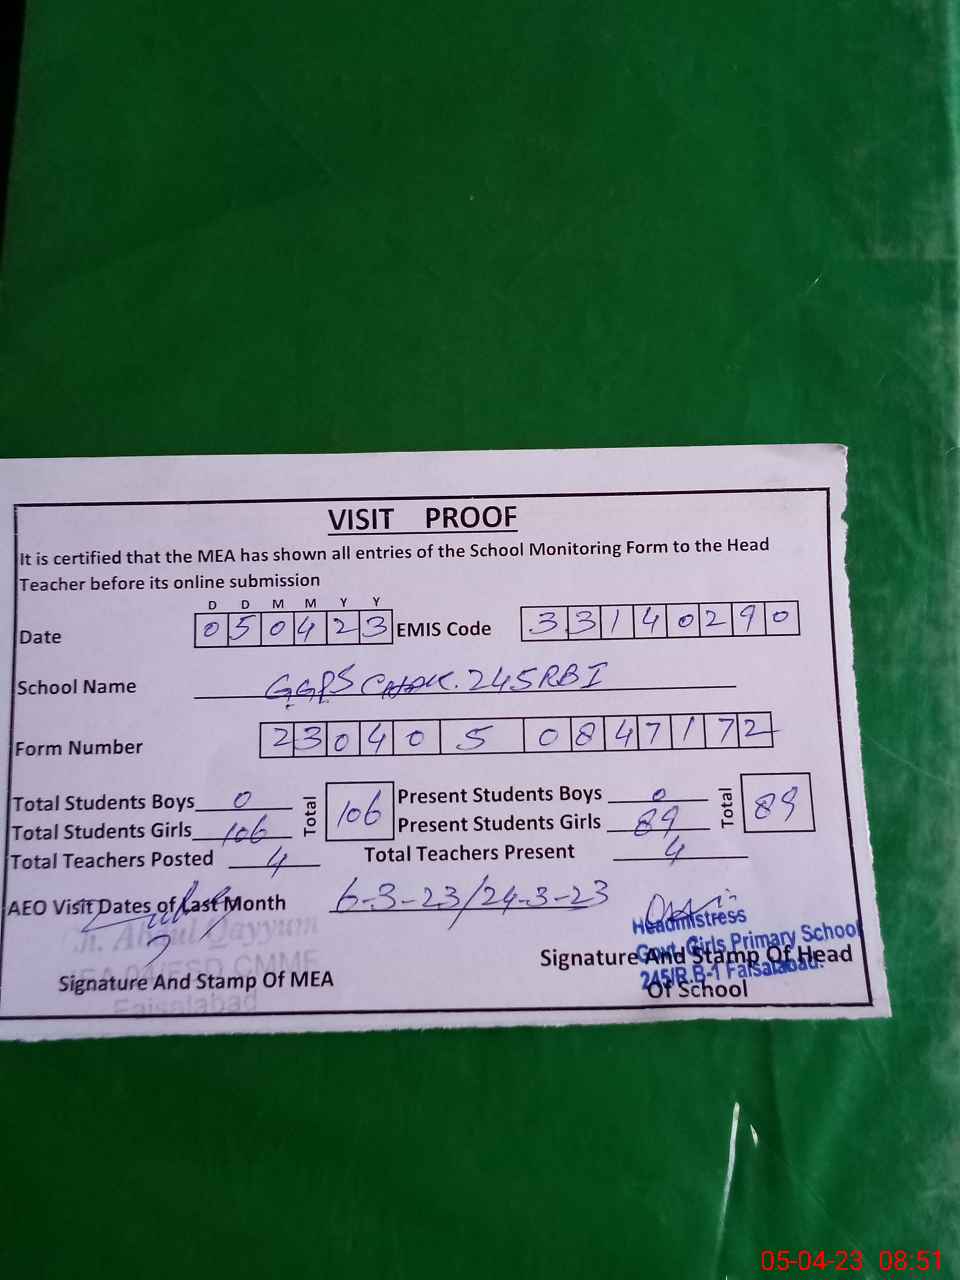 VISIT PROOF
It is certified that the MEA has shown all entries of the School Monitoring Form to the Head
Teacher before its online submission
D D M M Y Y
Date 0 5 0 4 2 3 EMIS Code 3 3 1 4 0 2 9 0
School Name GGPS Chak. 245RBI
Form Number 2 3 0 4 0 5 0 8 4 7 1 7 2
Total Students Boys 0 Total 106 Present Students Boys 0 Total 89
Total Students Girls 106 Present Students Girls 89
Total Teachers Posted 4 Total Teachers Present 4
AEO Visit Dates of Last Month 6-3-23/24-3-23
Ch. Abdul Qayyum
CMME
Faisalabad
Signature And Stamp Of MEA
Headmistress
Govt. Girls Primary School
245/R.B-1 Faisalabad.
Signature And Stamp Of Head
Of School
05-04-23 08:51